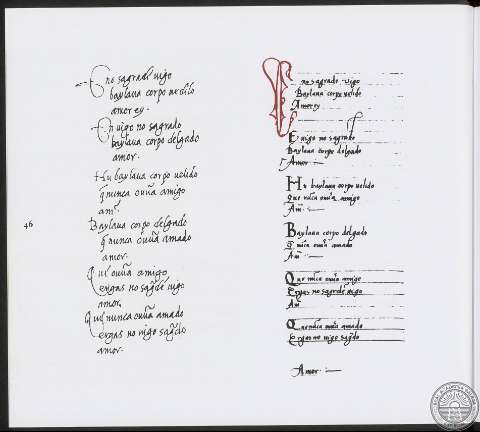 E no sagrad' uigo
baylaua corpo uelido
amor ey.
En uigo no sagrado
baylaua corpo delgado
amor.
Hu baylaua corpo uelido
q̃ nunca ouu̅a amigo
am̃
Baylaua corpo delgado
q̃ nunca ouu̅a amado
amor.
Qui ouu̅a amigo
ergas no sag̃de uigo
amor,
Qui nunca ouu̅a amado
ergas no uigo sag̃do
amor.
46
no sagrado uigo
Baylaua corpo uelido
Amor ey
E uigo no sagrado
baylaua corpo delgado
Amor
Hu baylaua corpo uelido
Que nũca ouu̅a amigo
Am̃
Baylaua corpo delgado
q̃ nũca ouu̅a amado
Am̃
Que nũca ouu̅a amigo
Ergas no sagrade uigo
Am̃
Que nũca ouu̅a amado
Ergas no uigo sag̃do
Amor